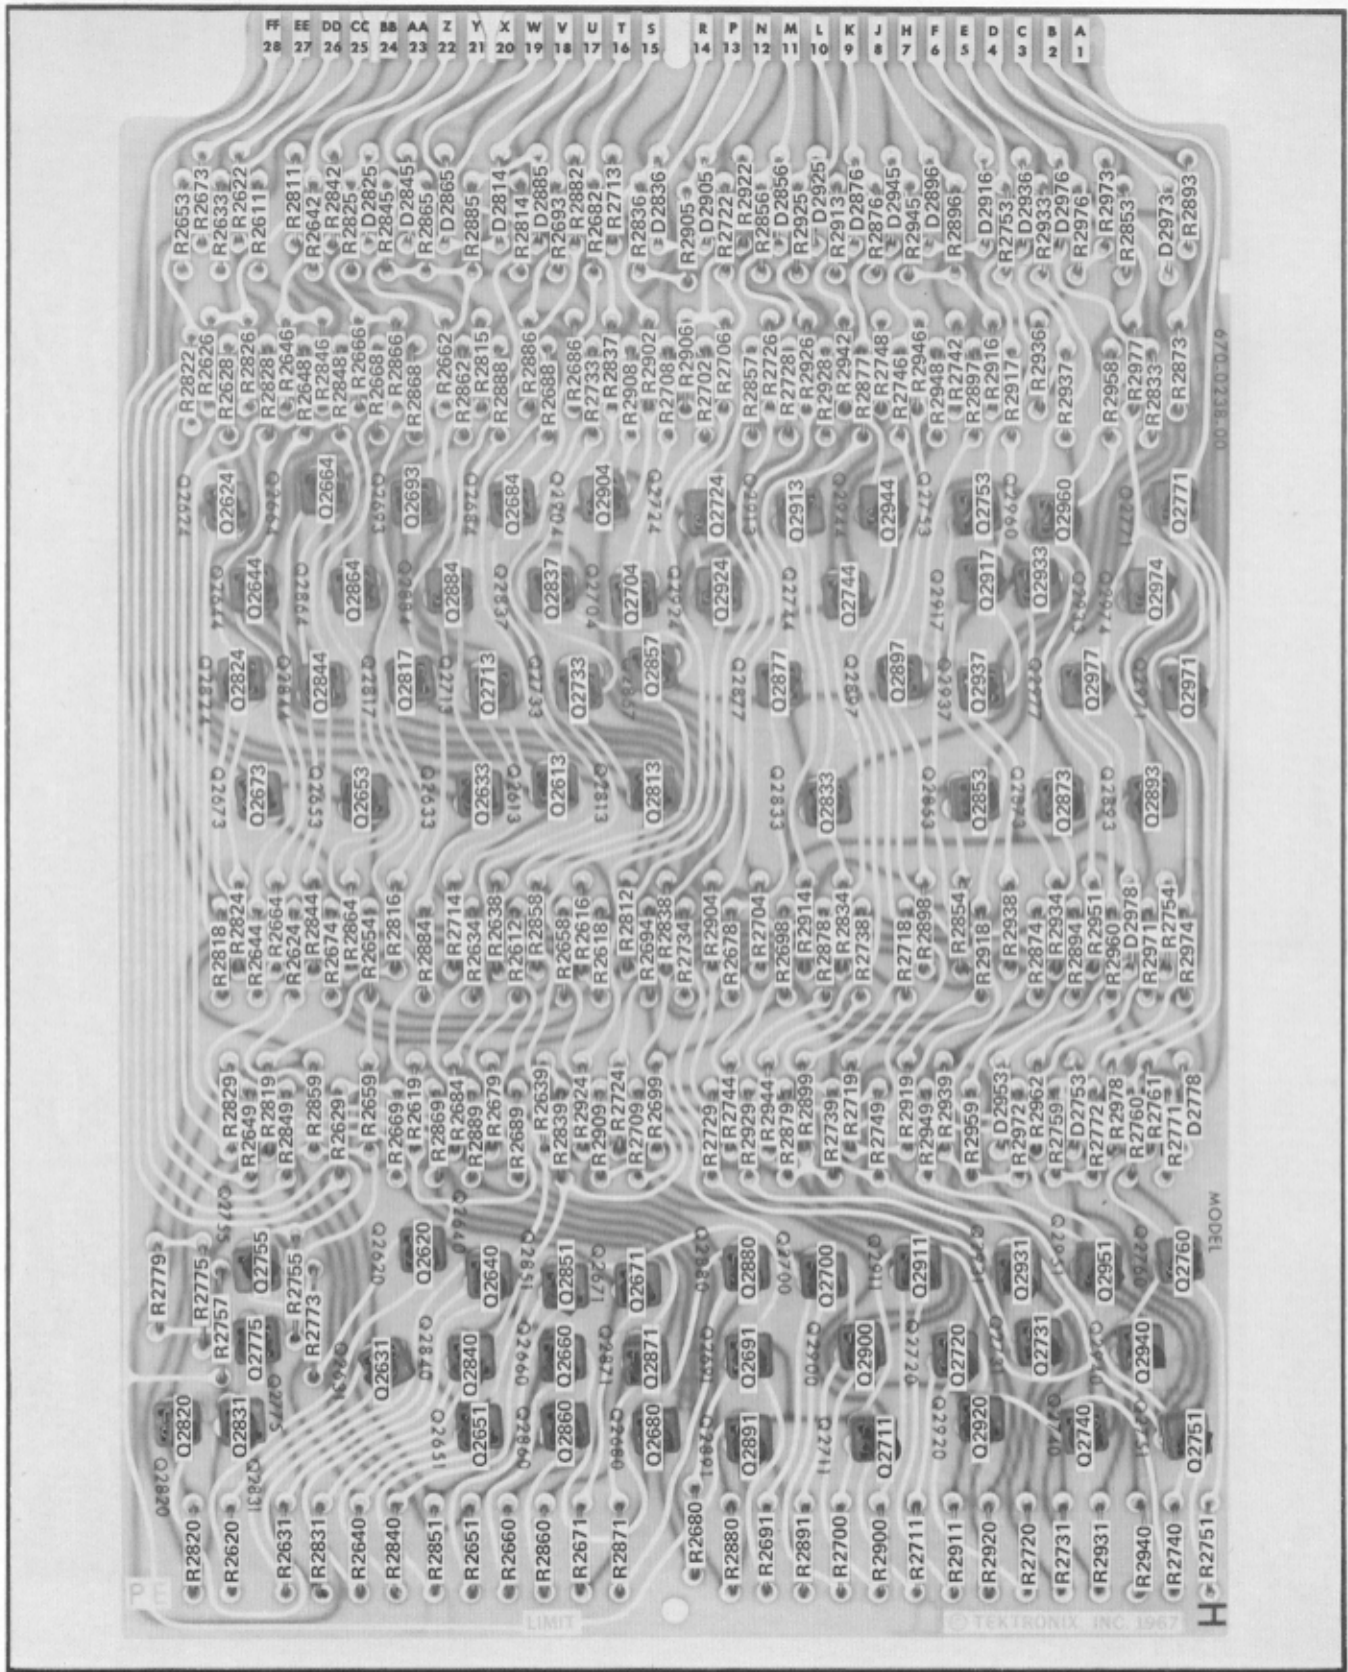 FF EE DD CC BB AA Z Y X W V U T S R P N M L K J H F E D C B A
28 27 26 25 24 23 22 21 20 19 18 17 16 15 14 13 12 11 10 9 8 7 6 5 4 3 2 1
R2653 R2673 R2633 R2622 R2611 R2811 R2642 R2842 R2825 D2825 R2845 D2845 R2865 D2865 R2885 D2814 R2814 D2885 R2693 R2882 R2682 R2713 R2836 D2836 R2905 D2905 R2722 R2922 R2856 D2856 R2925 D2925 R2913 D2876 R2876 D2945 R2945 D2896 R2896 D2916 R2753 D2936 R2933 D2976 R2976 R2973 R2853 D2973 R2893
R2822 R2626 R2628 R2826 R2828 R2646 R2648 R2846 R2848 R2666 R2668 R2866 R2868 R2662 R2862 R2815 R2888 R2886 R2688 R2686 R2733 R2837 R2908 R2902 R2708 R2906 R2702 R2706 R2857 R2726 R2728 R2926 R2928 R2942 R2877 R2748 R2746 R2946 R2948 R2742 R2897 R2916 R2917 R2936 R2937 R2958 R2977 R2833 R2873
670-0238-00
Q2624 Q2624 Q2664 Q2664 Q2693 Q2693 Q2684 Q2684 Q2904 Q2904 Q2724 Q2724 Q2913 Q2913 Q2944 Q2944 Q2753 Q2753 Q2960 Q2960 Q2771 Q2771
Q2644 Q2644 Q2864 Q2864 Q2884 Q2884 Q2837 Q2837 Q2704 Q2704 Q2924 Q2924 Q2744 Q2744 Q2917 Q2917 Q2933 Q2933 Q2974 Q2974
Q2824 Q2824 Q2844 Q2844 Q2817 Q2817 Q2713 Q2713 Q2733 Q2733 Q2857 Q2857 Q2877 Q2877 Q2897 Q2897 Q2937 Q2937 Q2977 Q2977 Q2971 Q2971
Q2673 Q2673 Q2653 Q2653 Q2633 Q2633 Q2613 Q2613 Q2813 Q2813 Q2833 Q2833 Q2853 Q2853 Q2873 Q2873 Q2893 Q2893
R2818 R2824 R2644 R2664 R2624 R2844 R2674 R2864 R2654 R2816 R2884 R2714 R2634 R2638 R2612 R2858 R2658 R2616 R2618 R2812 R2694 R2838 R2734 R2904 R2678 R2704 R2698 R2914 R2878 R2834 R2738 R2718 R2898 R2854 R2918 R2938 R2874 R2934 R2894 R2951 R2960 D2978 R2971 R2754 R2974
R2829 R2649 R2819 R2849 R2859 R2629 R2659 R2669 R2619 R2869 R2684 R2889 R2679 R2689 R2639 R2839 R2924 R2909 R2724 R2709 R2699 R2729 R2744 R2929 R2944 R2879 R2899 R2739 R2719 R2749 R2919 R2949 R2939 R2959 D2953 R2972 R2962 R2759 D2753 R2772 R2978 R2760 R2761 R2771 D2778
MODEL
R2779 R2775 R2757 Q2755 Q2755 R2755 R2773 Q2620 Q2620 Q2640 Q2640 Q2851 Q2851 Q2671 Q2671 Q2880 Q2880 Q2700 Q2700 Q2911 Q2911 Q2931 Q2931 Q2951 Q2951 Q2760 Q2760
Q2775 Q2631 Q2631 Q2840 Q2840 Q2660 Q2660 Q2871 Q2871 Q2691 Q2691 Q2900 Q2900 Q2720 Q2720 Q2731 Q2731 Q2940 Q2940
Q2820 Q2820 Q2831 Q2831 Q2775 Q2651 Q2651 Q2860 Q2860 Q2680 Q2680 Q2891 Q2891 Q2711 Q2711 Q2920 Q2920 Q2740 Q2740 Q2751 Q2751
R2820 R2620 R2631 R2831 R2640 R2840 R2851 R2651 R2660 R2860 R2671 R2871 R2680 R2880 R2691 R2891 R2700 R2900 R2711 R2911 R2920 R2720 R2731 R2931 R2940 R2740 R2751
PE LIMIT © TEKTRONIX, INC. 1967 H